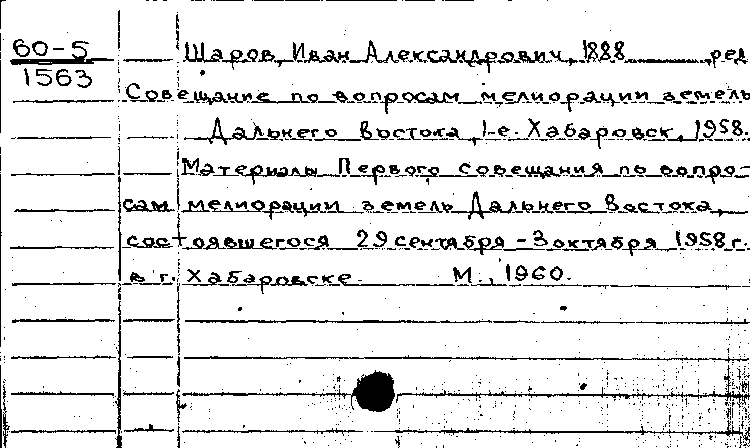 60-5 Шаров, Иван Александрович, 1888 ред
1563
Совещание по вопросам мелиорации земель
Дальнего Востока, 1-е. Хабаровск, 1958.
Материалы Первого совещания по вопро-
сам мелиорации земель Дальнего Востока,
состоявшегося 29 сентября - 3 октября 1958 г.
в г. Хабаровске. М., 1960.